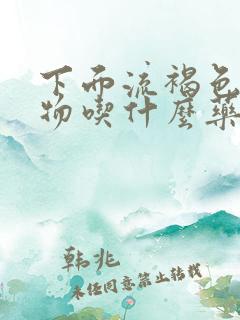 下面流褐色
物吃什麼藥
韩兆
未经同意禁止转载